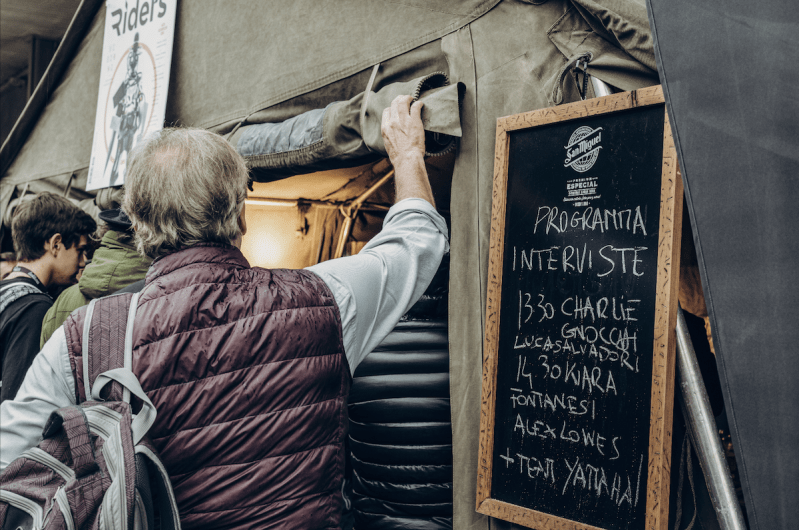 Riders
San Miguel
ESPECIAL
PROGRAMMA
INTERVISTE
13.30 CHARLIE
GNOCCHI
LUCA SALVADORI
14.30 KIARA
FONTANESI
ALEX LOWES
+ TEAM YAMAHA